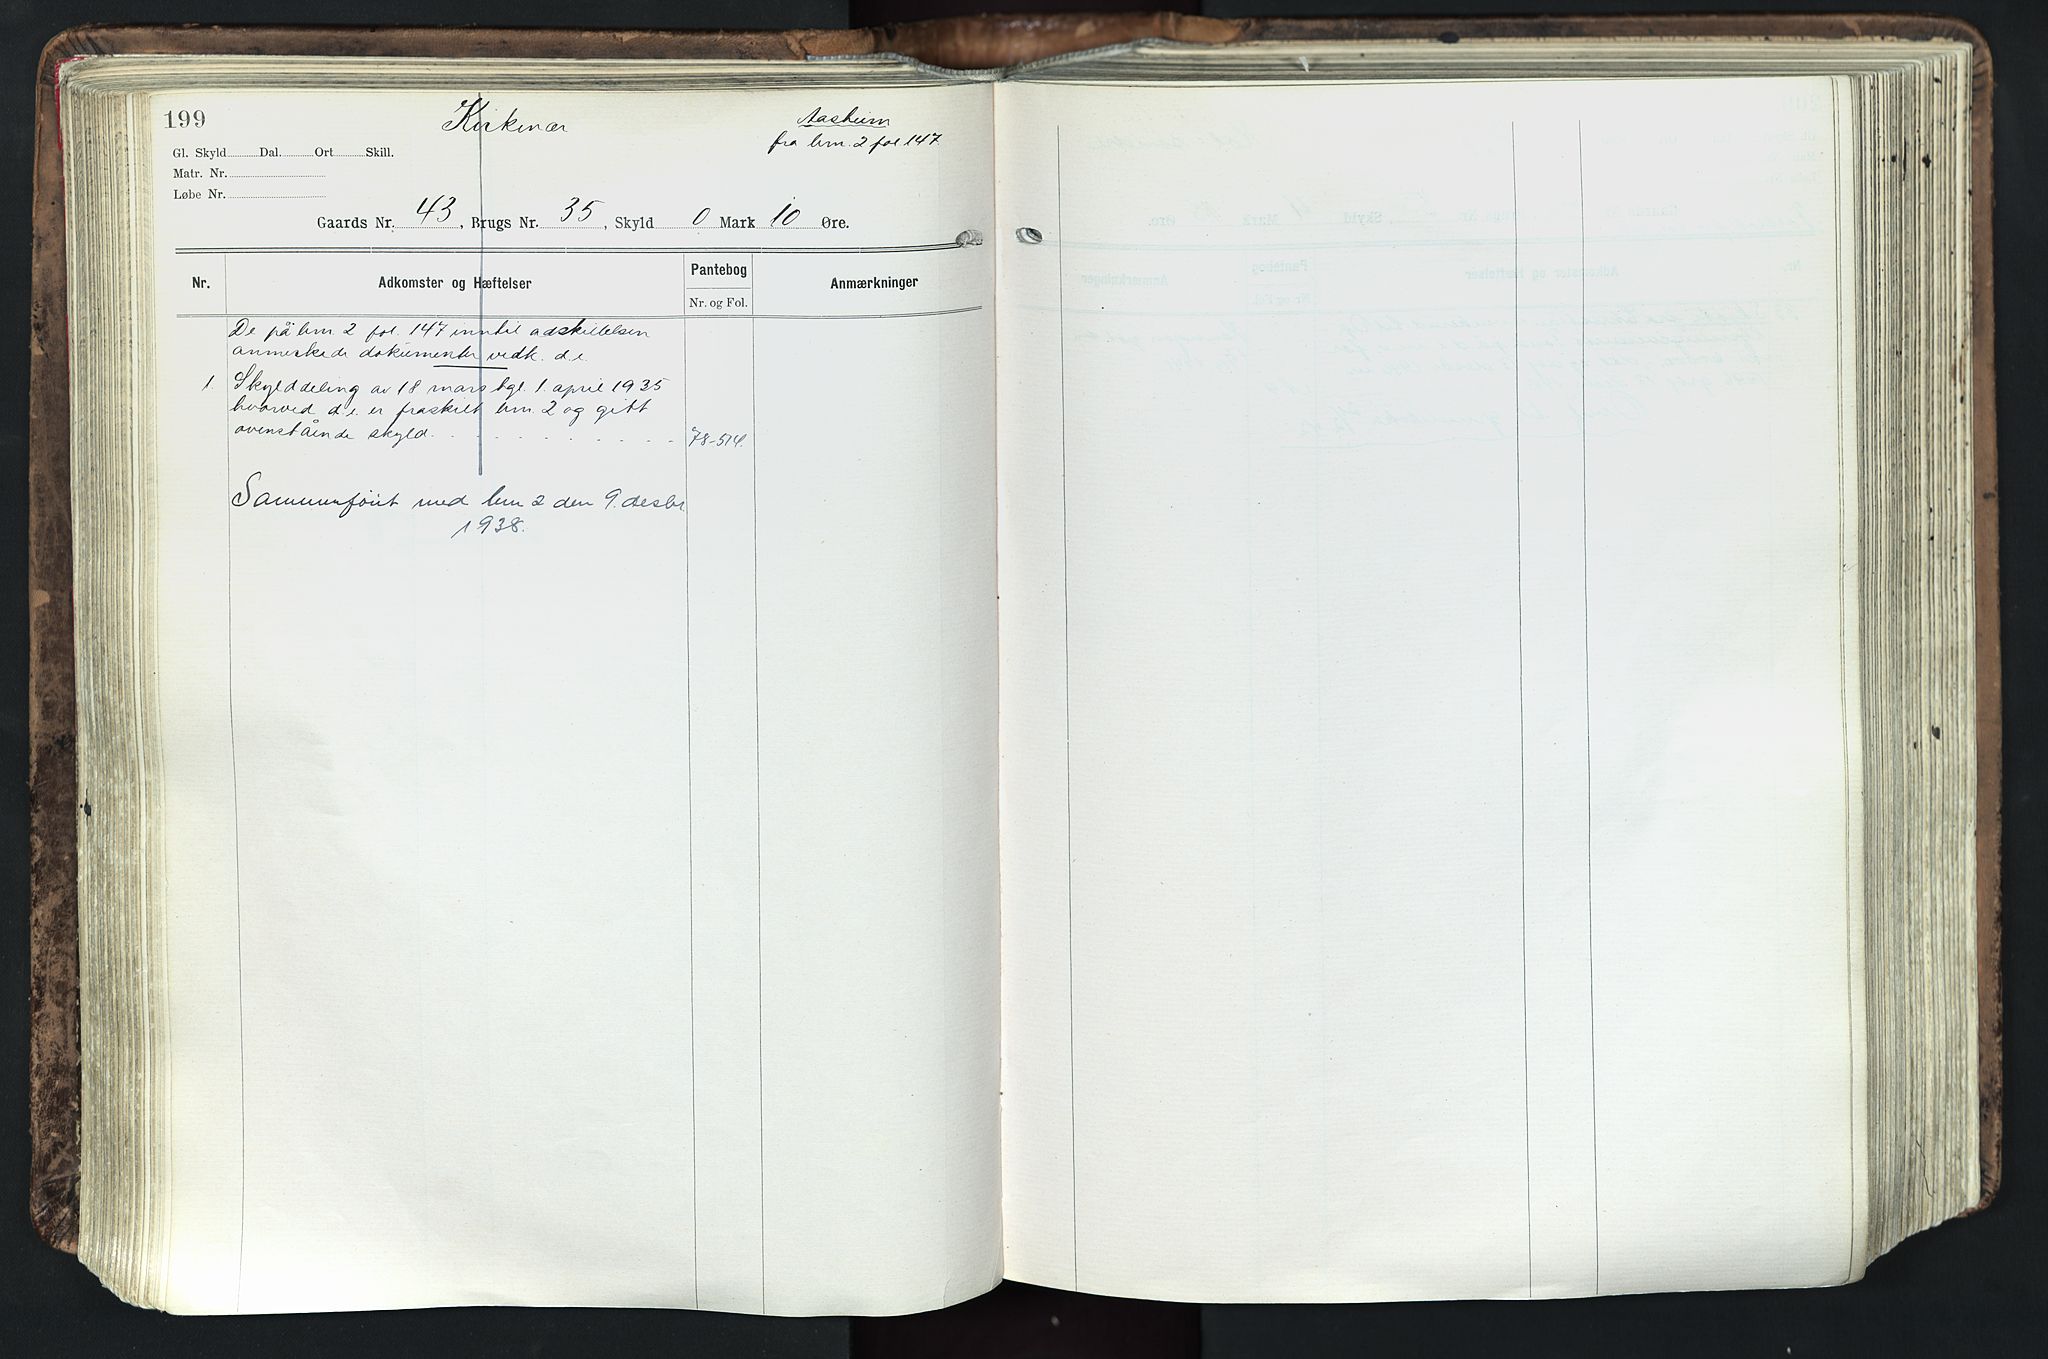 199
Kirkenær
Aasheim
fra brn. 2 fol 147
Gl. Skyld Dal. Ort Skill.
Matr. Nr.
Løbe Nr.
Gaards Nr. 43, Brugs Nr. 35, Skyld 0 Mark 10 Øre.
Nr.
Adkomster og Hæftelser
Pantebog
Nr. og Fol.
Anmærkninger
De på brn. 2 fol. 147 inntil adskillelsen
anmerkede dokumenter vedk. d.e.
1. Skylddeling av 18 mars tgl. 1. april 1935
hvorved d.e. er fraskilt brn. 2 og gitt
ovenstående skyld. 78-514.
Sammenföiet med brn 2 den 9. desbr
1938.